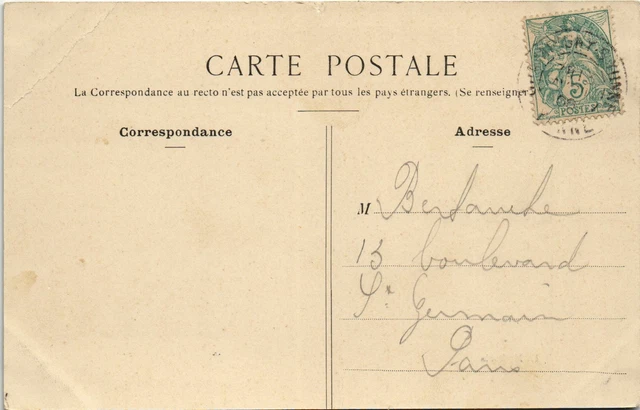 CARTE POSTALE
La Correspondance au recto n'est pas acceptée par tous les pays étrangers. (Se renseigner
Correspondance
Adresse
M
13 boulevard
St Germain
Paris
5
POSTES